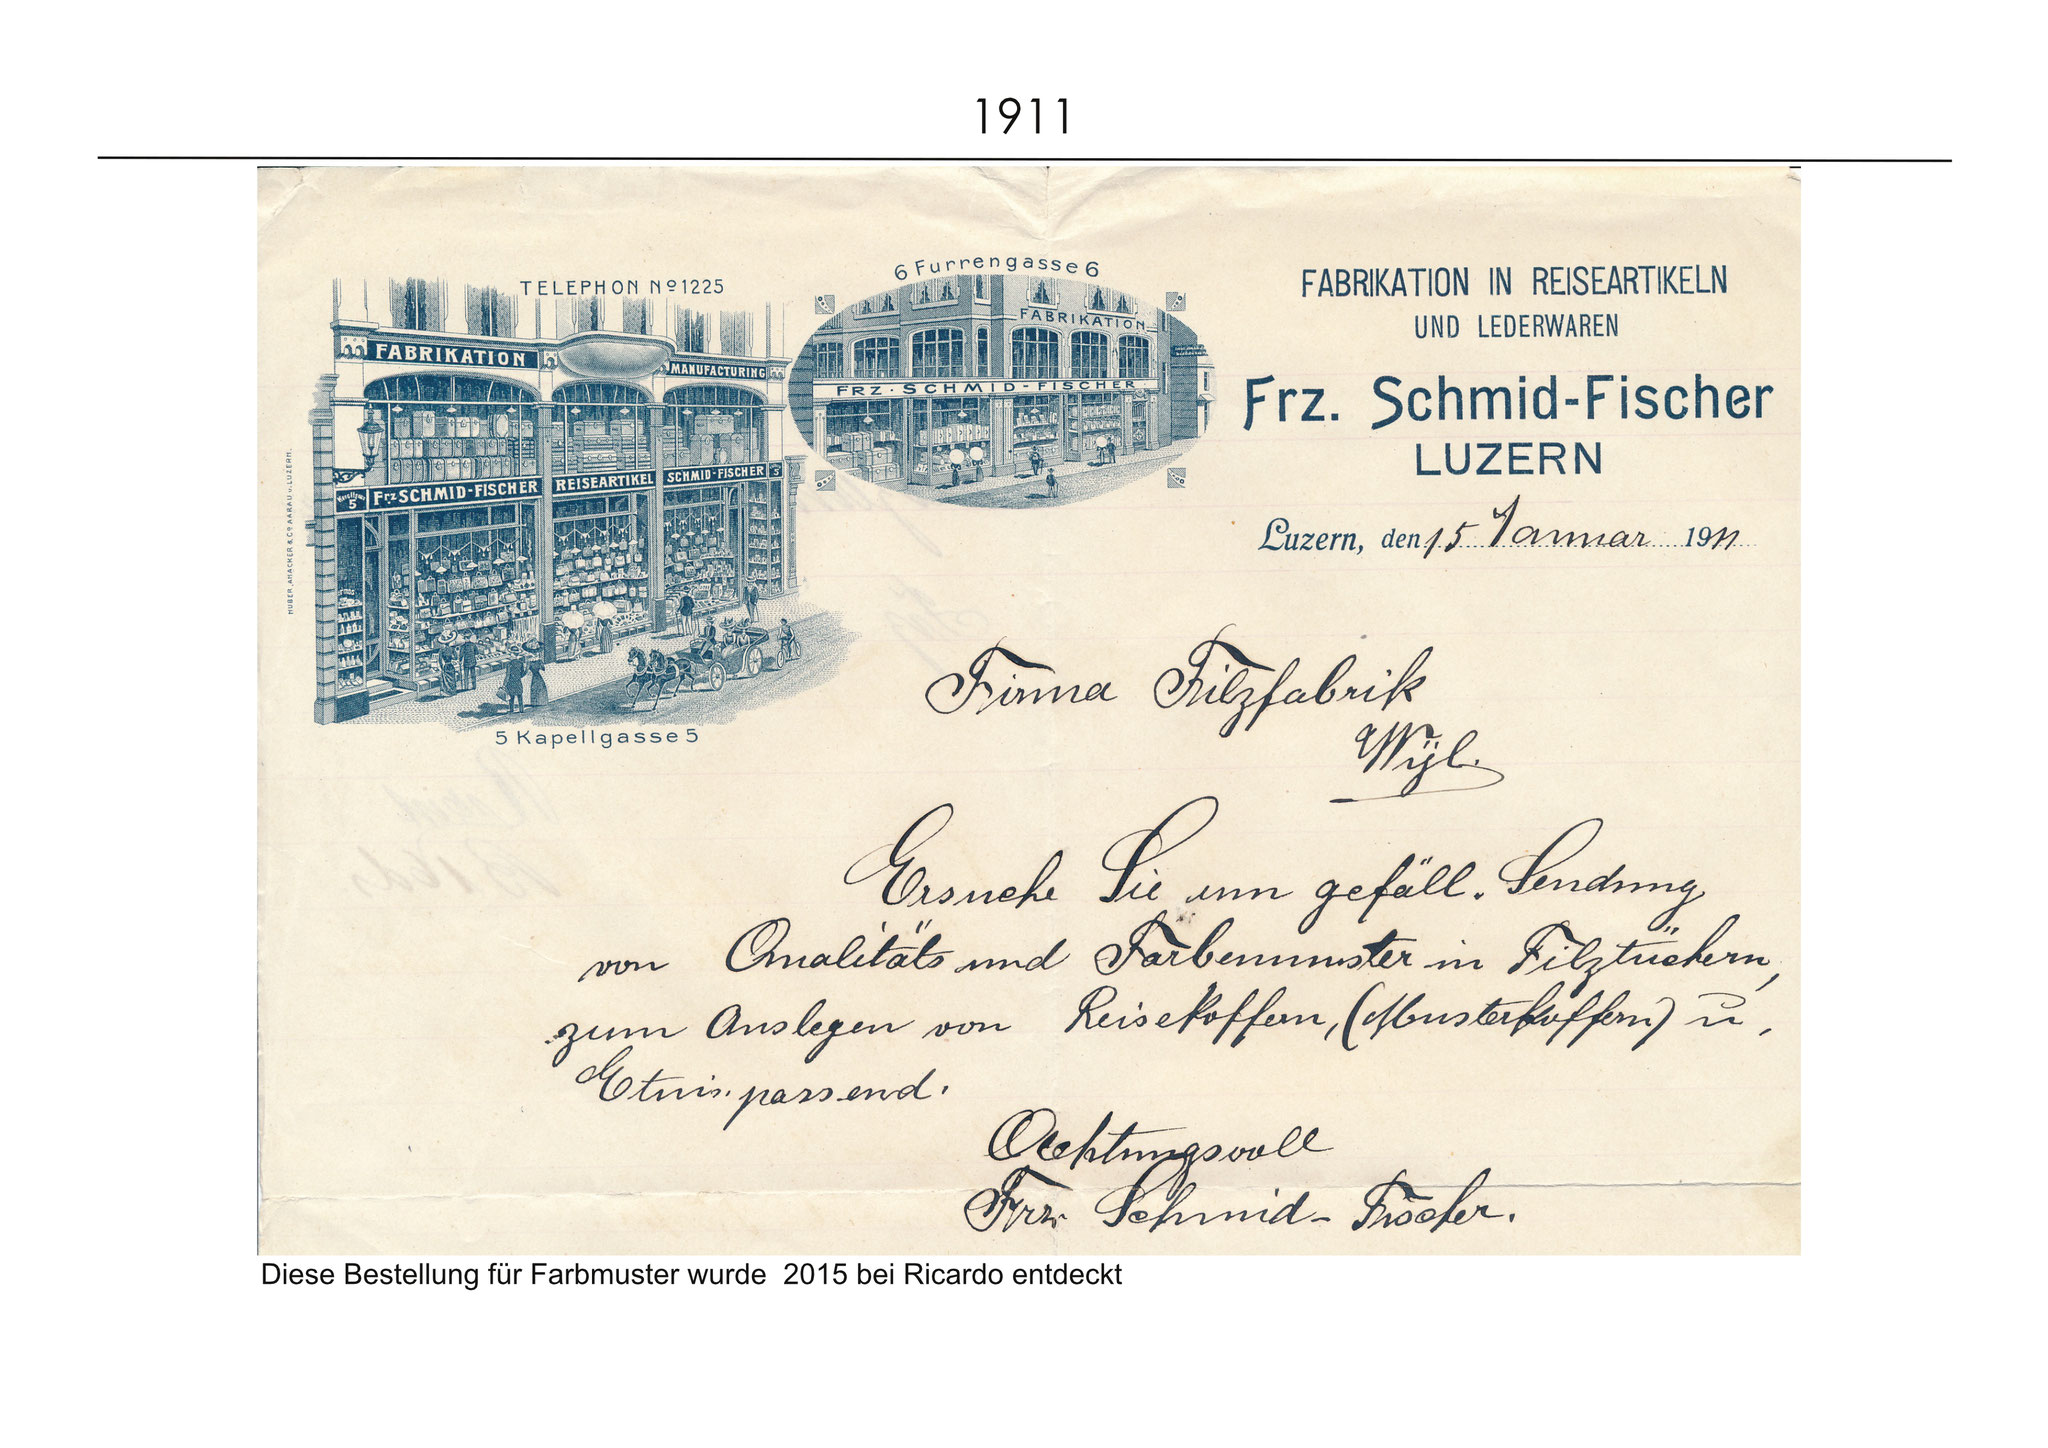 1911
TELEPHON No 1225
6 Furrengasse 6
FABRIKATION
MANUFACTURING
Kapellgasse 5
Frz SCHMID-FISCHER
REISEARTIKEL
SCHMID-FISCHER
5
5 Kapellgasse 5
HUBER, AMACKER & Co AARAU u. LUZERN.
FABRIKATION
FRZ. SCHMID-FISCHER
FABRIKATION IN REISEARTIKELN
UND LEDERWAREN
Frz. Schmid-Fischer
LUZERN
Luzern, den 15 Januar 1911
Firma Filzfabrik
Wÿl.
Ersuche Sie um gefäll. Sendung
von Qualitäts und Farbenmuster in Filztüchern,
zum Auslegen von Reisekoffern, (Musterkoffern) u,
Etuis. passend.
Achtungsvoll
Frz. Schmid-Fischer.
Diese Bestellung für Farbmuster wurde 2015 bei Ricardo entdeckt